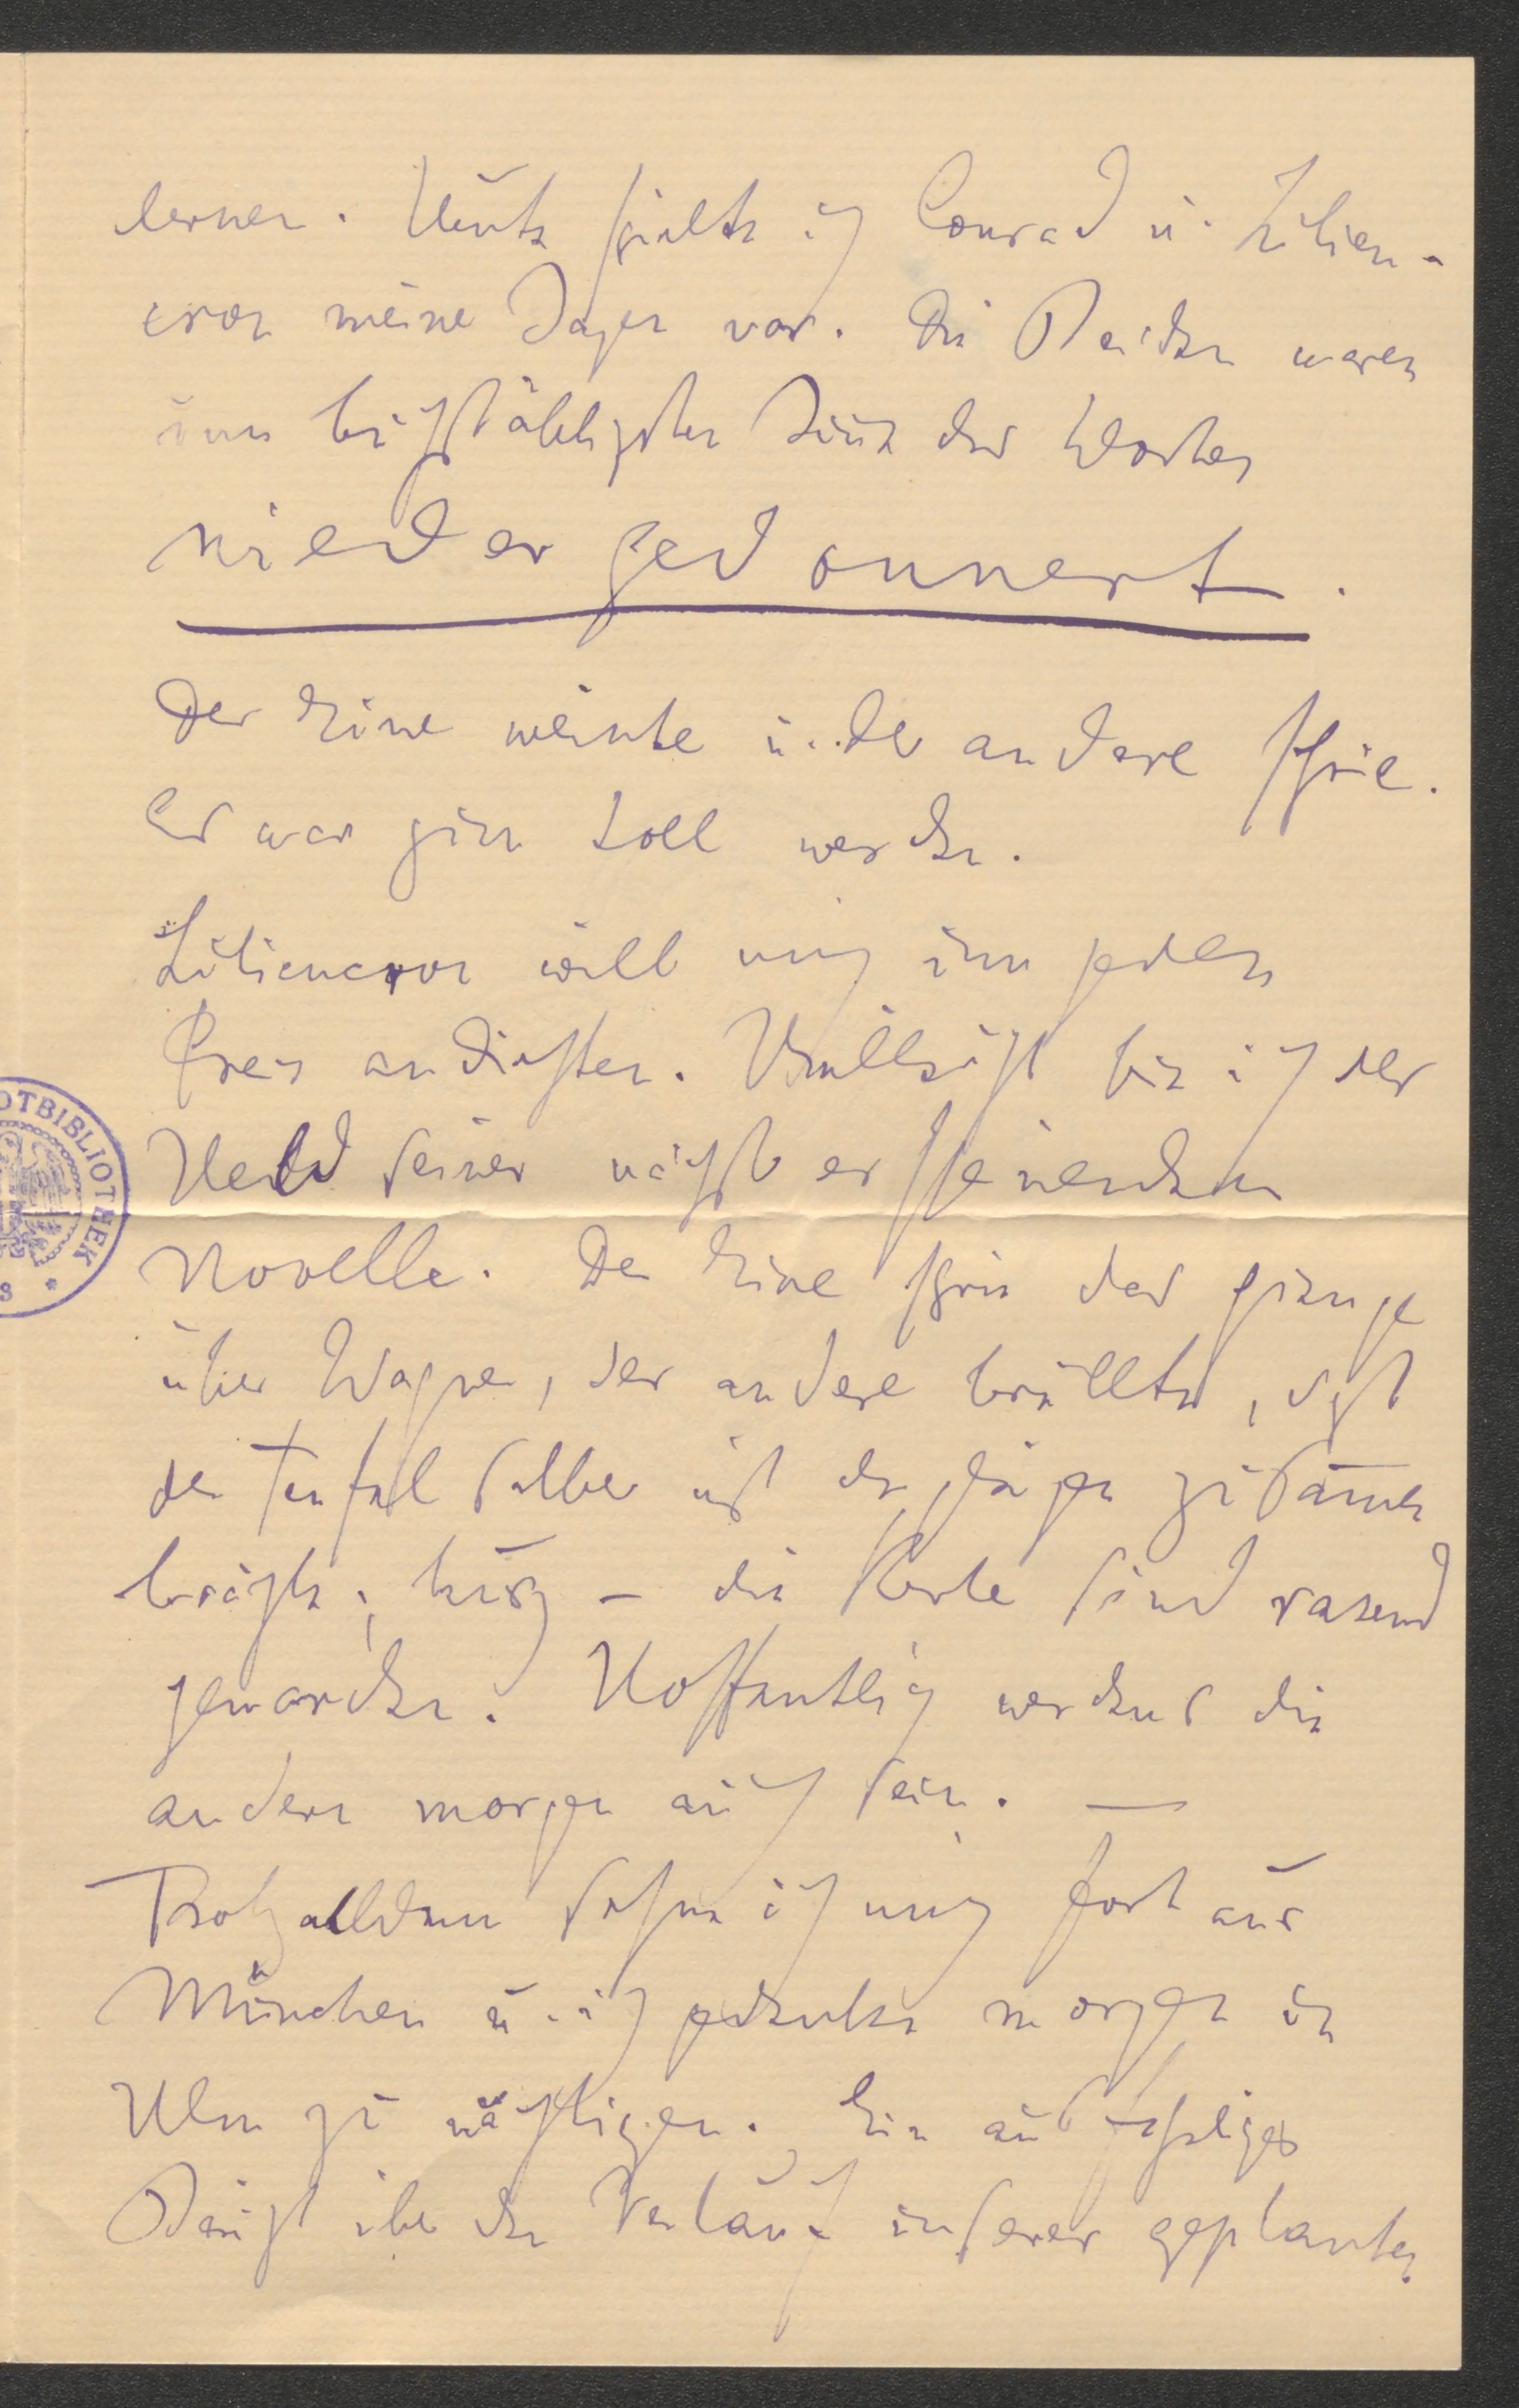 lernen. Heute spielte ich Conrad u. Lilien-
cron meine Sagen vor. Die Beiden waren
im buchstäblichsten Sinn des Wortes
niedergedonnert.
Der Eine weinte u. der andere schrie.
Es war zum toll werden.
Liliencron will mich um jeden
Preis andichten. Vielleicht bin ich der
Held seiner nächst erscheinenden
Novelle. Der Eine schrie das ginge
über Wagner, der andere brüllte,
der Teufel selber ist der zusammen
brächte, kurz – die Kerle sind rasend
geworden. Hoffentlich werdens die
andern morgen auch sein. —
Trotzalldem sehne ich mich fort aus
München u. ich gedenke morgen in
Ulm zu nächtigen. Ein ausführliges
Bericht über den Verlauf unserer geplanten
OTBIBLIOTHEK